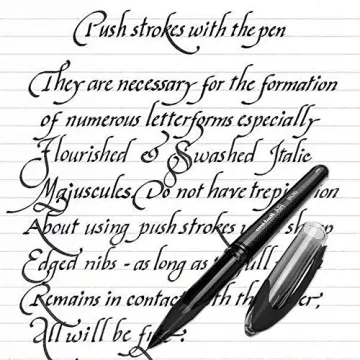 Push strokes with the pen
They are necessary for the formation
of numerous letterforms especially
Flourished & Swashed Italic
Majuscules. Do not have trepi on
About using push strokes sh
Edged nibs - as long as ull
Remains in contact th er;
All will be fi